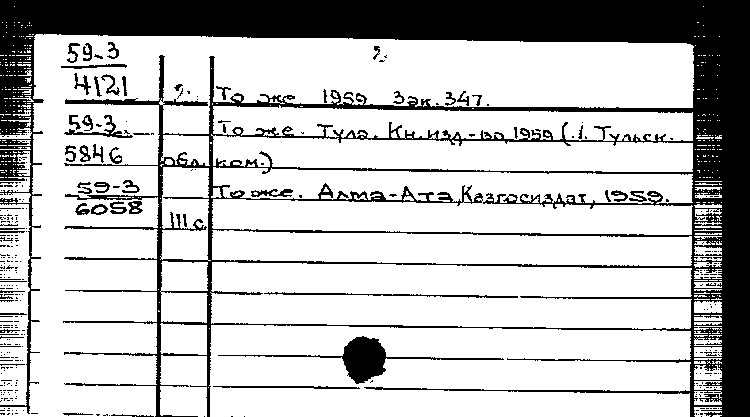 2.
59-3
4121 2. То же 1959. Зак. 347.
59-3 То же. Тула. Кн. изд-во, 1959 (Тульск.
5846 обл. ком.)
59-3 То же. Алма-Ата, Казгосиздат, 1959.
6058
111 с.